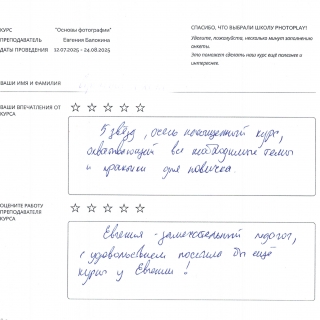 КУРС "Основы фотографии"
ПРЕПОДАВАТЕЛЬ Евгения Балохина
ДАТЫ ПРОВЕДЕНИЯ 12.07.2025 - 24.08.2025
СПАСИБО, ЧТО ВЫБРАЛИ ШКОЛУ PHOTOPLAY!
Уделите, пожалуйста, несколько минут заполнению
анкеты.
Это поможет сделать наш курс ещё полезнее и
интереснее.
ВАШИ ИМЯ И ФАМИЛИЯ
ВАШИ ВПЕЧАТЛЕНИЯ ОТ
КУРСА
5 звёзд, очень насыщенный курс,
охватывающий все необходимые темы
и практики для новичка.
ОЦЕНИТЕ РАБОТУ
ПРЕПОДАВАТЕЛЯ
КУРСА
Евгения - замечательный педагог,
с удовольствием посетила бы ещё
курсы у Евгении!